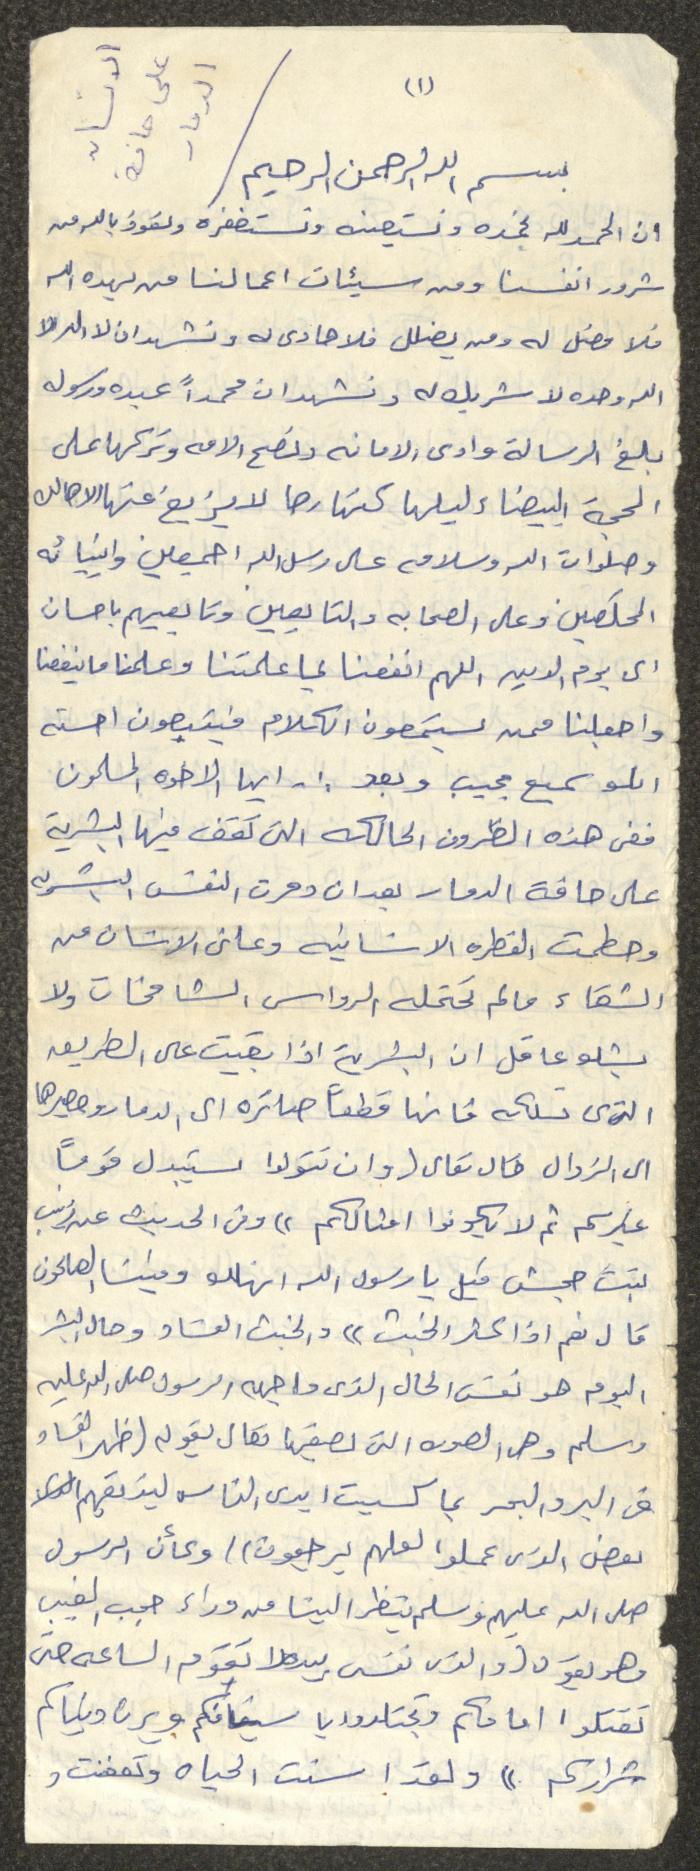 (١)
الانسان
على حافة
الدمار
بسم الله الرحمن الرحيم
ان الحمد لله نحمده ونستعينه ونستغفره ونعوذ بالله من
شرور انفسنا ومن سيئات اعمالنا من يهده الله
فلا مضل له ومن يضلل فلا هادى له ونشهد ان لا اله الا
الله وحده لا شريك له ونشهد ان محمداً عبده ورسوله
بلغ الرسالة وادى الامانه ونصح الامه وتركها على
المحجة البيضاء ليلها كنهارها لا يزيغ عنها الا هالك
وصلوات الله وسلامه على رسل الله اجمعين وانبيائه
المخلصين وعلى الصحابه والتابعين وتابعيهم باحسان
الى يوم الدين اللهم انفعنا بما علمتنا وعلمنا ما ينفعنا
واجعلنا ممن يستمعون الكلام فيتبعون احسنه
انك سميع مجيب وبعد :- ايها الاخوه المسلمون
ففى هذه الظروف الحالكه التى تقف فيها البشرية
على حافة الدمار بعد ان دمرت النفس البشريه
وحطمت الفطره الانسانيه وعانى الانسان من
الشقاء مالم تحتمله الرواسى الشامخات ولا
يشك عاقل ان البشرية اذا بقيت على الطريق
الذى تسلكه فانها قطعاً صائره الى الدمار ومصيرها
الى الزوال قال تعالى (وان تتولوا يستبدل قوماً
غيركم ثم لا يكونوا امثالكم )) وفى الحديث عن زينب
بنت جحش قيل يا رسول الله انهلك وفينا الصالحون
قال نعم اذا كثر الخبث )) والخبث الفساد وحال البشر
اليوم هو نفس الحال الذى واجهه الرسول صلى الله عليه
وسلم وهى الصوره التى يصفها تعالى بقوله (ظهر الفساد
فى البر والبحر بما كسبت ايدى الناس ليذيقهم
بعض الذى عملوا لعلهم يرجعون)) وكأن الرسول
صلى الله عليه وسلم ينظر الينا من وراء حجب الغيب
وهو يقول (والذى نفسى بيده لا تقوم الساعه حتى
تقتلوا امامكم وتجتلدوا با سيافكم ويرث دنياكم
شراركم )) ولقد اسنت الحياه وتعفنت و